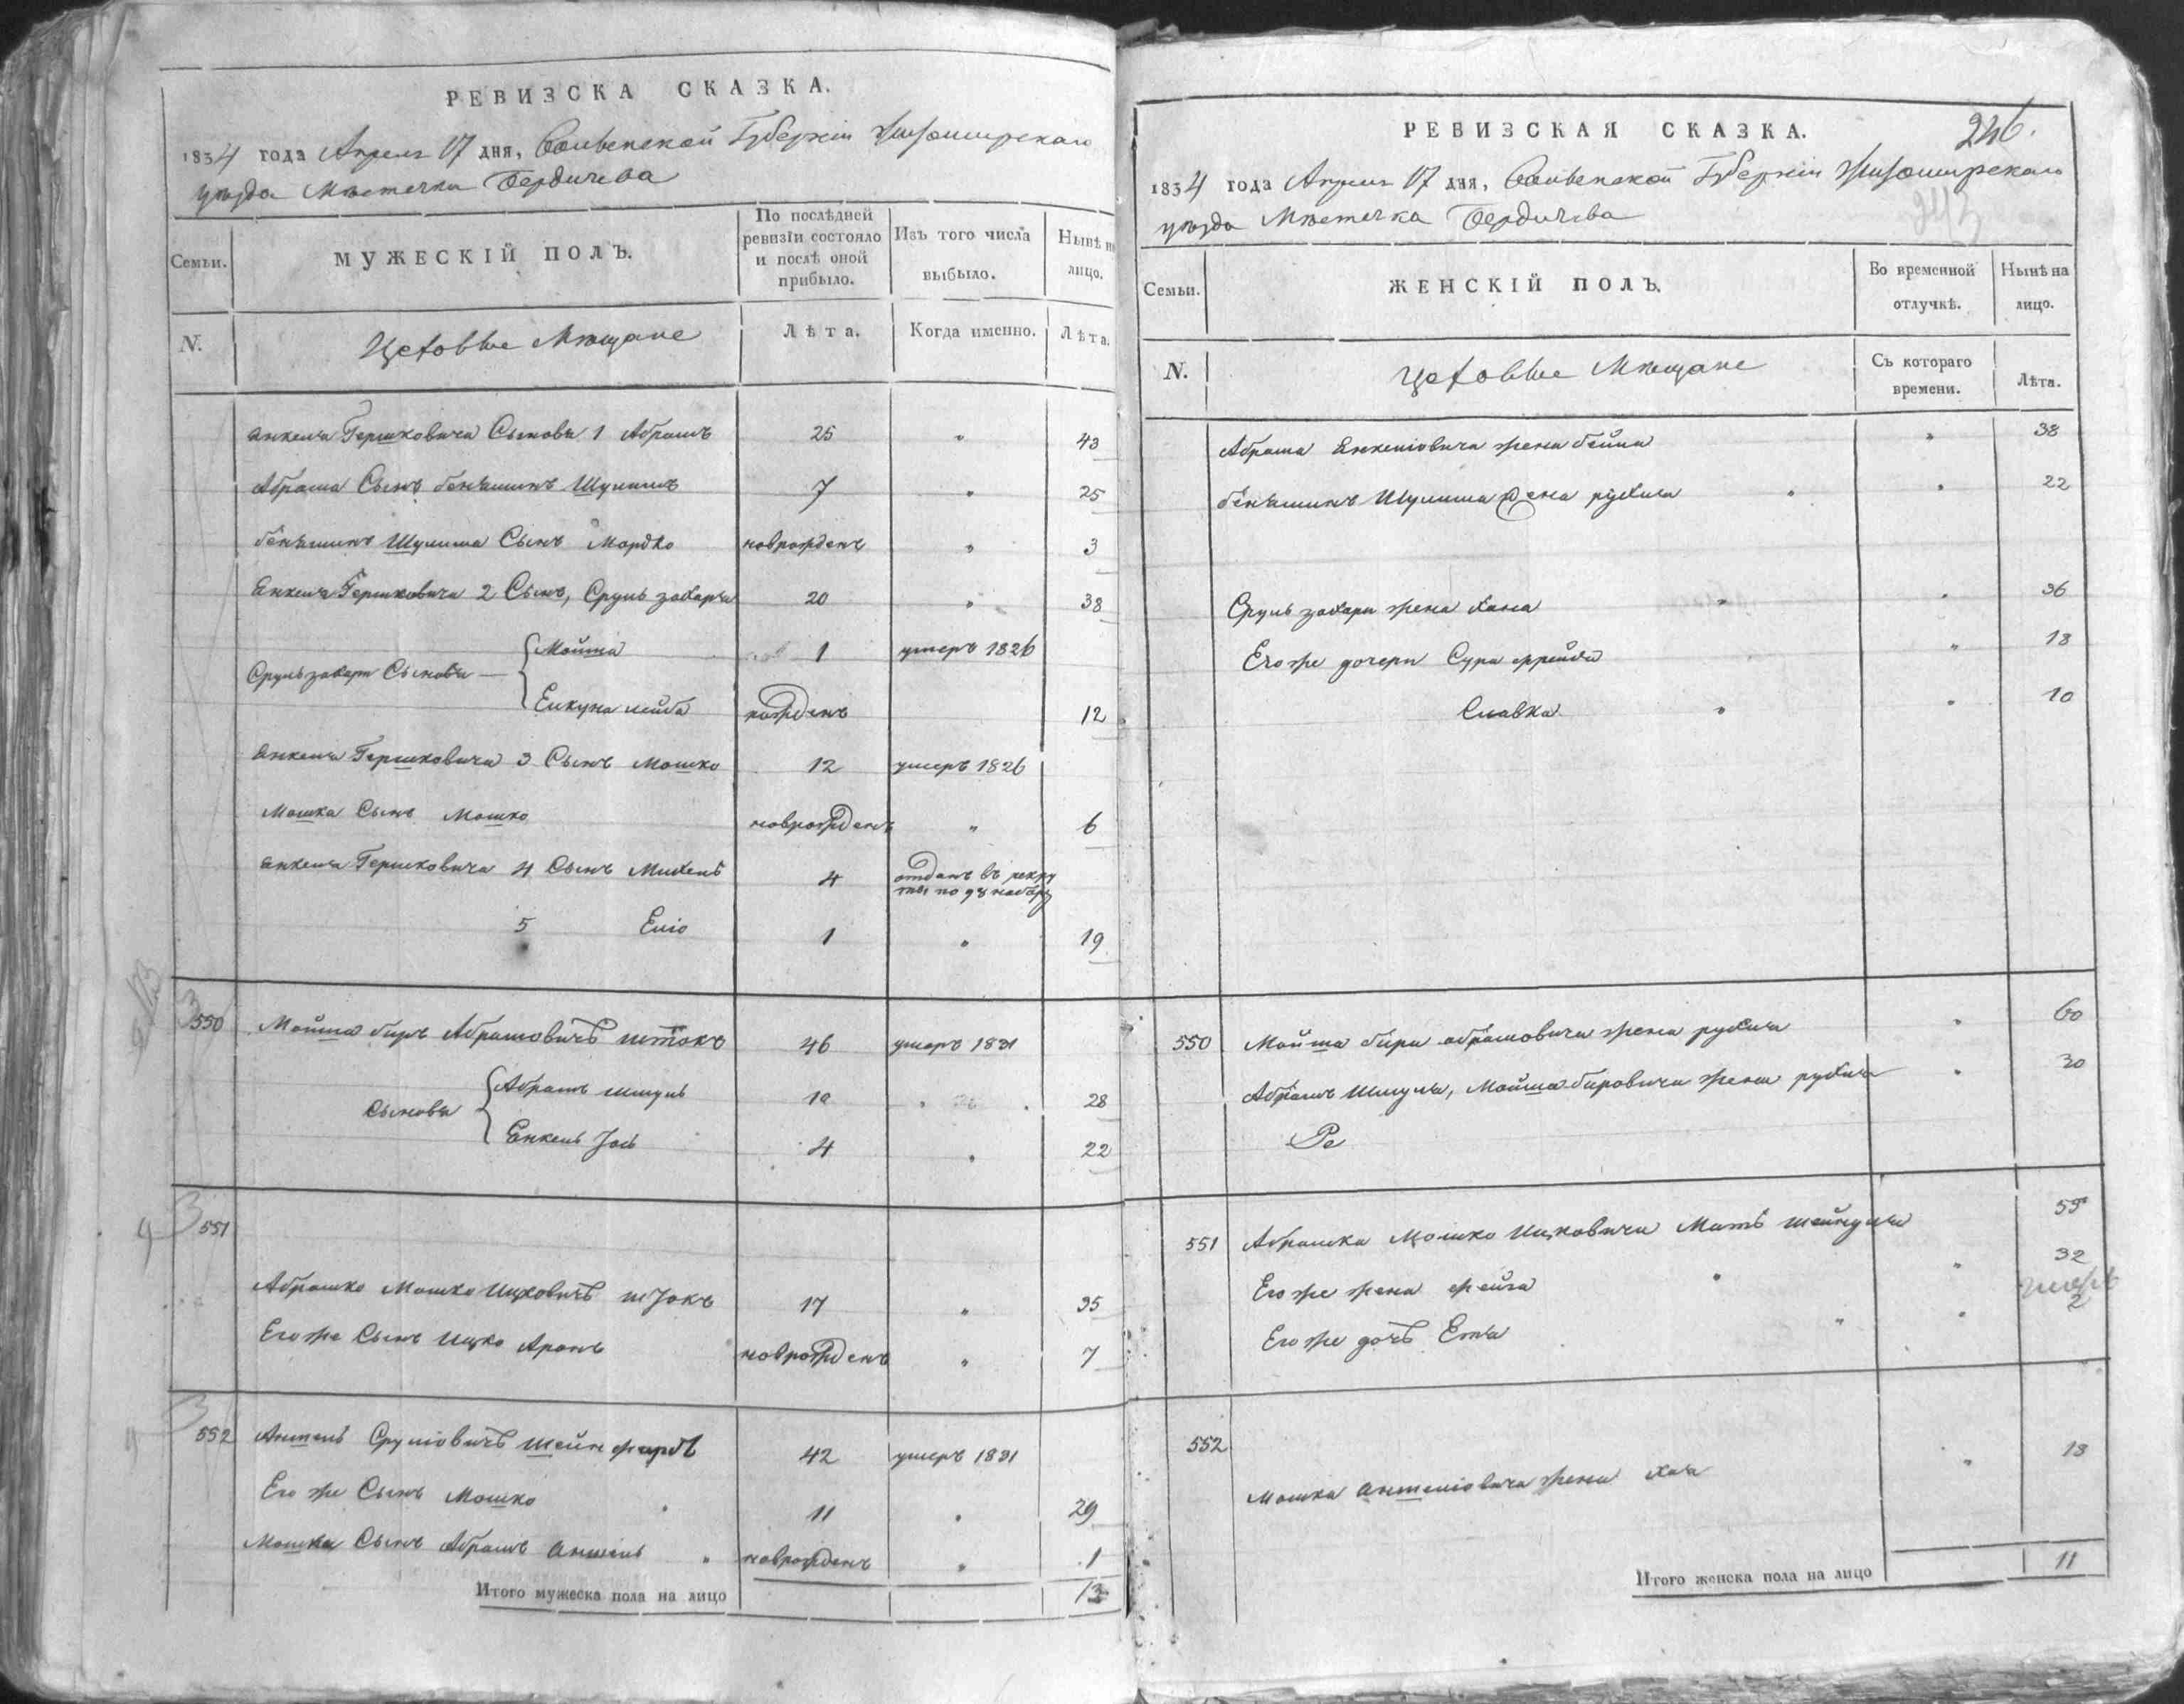 РЕВИЗСКА СКАЗКА.
1834 года Апреля 17 дня, Волынской Губерніи Житомирскаго
уѣзда Мѣстечка Бердичева
Семьи.
МУЖЕСКІЙ ПОЛЪ.
По послѣдней ревизіи состояло и послѣ оной прибыло.
Изъ того числа выбыло.
Нынѣ на лицо.
N.
Цеховые Мѣщане
Лѣта.
Когда именно.
Лѣта.
Янкеля Гершковича Сыновья 1 Абрамъ 25 " 43
Абрама Сынъ беняминъ Шулимъ 7 " 25
беняминъ Шулима Сынъ Мордко новорожденъ " 3
Енкеля Гершковича 2 Сынъ, Сруль захарья 20 " 38
Сруль захарт Сыновья — { Мойша 1 умеръ 1826
Еикуна лейба рожденъ 12
Янкеля Гершковича 3 Сынъ Мошко 12 умеръ 1826
Мошка Сынъ Мошко новорожденъ " 6
Янкеля Гершковича 4 Сынъ Михель 4 отданъ въ рекру
ты по 98 набору
5 Еліо 1 " 19
550 Мойша беръ Абрамовичъ штокъ 46 умеръ 1831
Сыновья { Абрамъ шмуль 10 " 28
Енкель Іось 4 " 22
551
Абрашко Мошко Ицковичъ штокъ 17 " 35
Его же Сынъ Ицко Аронъ новорожденъ " 7
552 Аншель Сруліовичъ шейнфарбъ 42 умеръ 1831
Его же Сынъ Мошко 11 " 29
Мошка Сынъ Абрамъ Аншель " новорожденъ " 1
Итого мужеска пола на лицо 13
РЕВИЗСКАЯ СКАЗКА.
246.
1834 года Апреля 17 дня, Волынской Губерніи Житомирскаго
уѣзда Мѣстечка Бердичева
243
Семьи.
ЖЕНСКІЙ ПОЛЪ.
Во временной отлучкѣ.
Нынѣ на лицо.
N.
Цеховые Мѣщане
Съ котораго времени.
Лѣта.
Абрама Енкеліовича жена бейла " 38
бенямина Шулима жена рухля " 22
Сруль захари жена хана " 36
Его же дочери Сура фрейда " 18
Славка " 10
550 Мойша бера абрамовича жена рухля " 60
Абрамъ Шмуля, Мойша-беровича жена рухля " 30
Ре
551 Абрашка Мошко Ицковича Мать шейндля 55
Его же жена фейга " 32
Его же дочь Етя " 2
552
Мошка Аншеліовича жена хая " 18
Итого женска пола на лицо 11